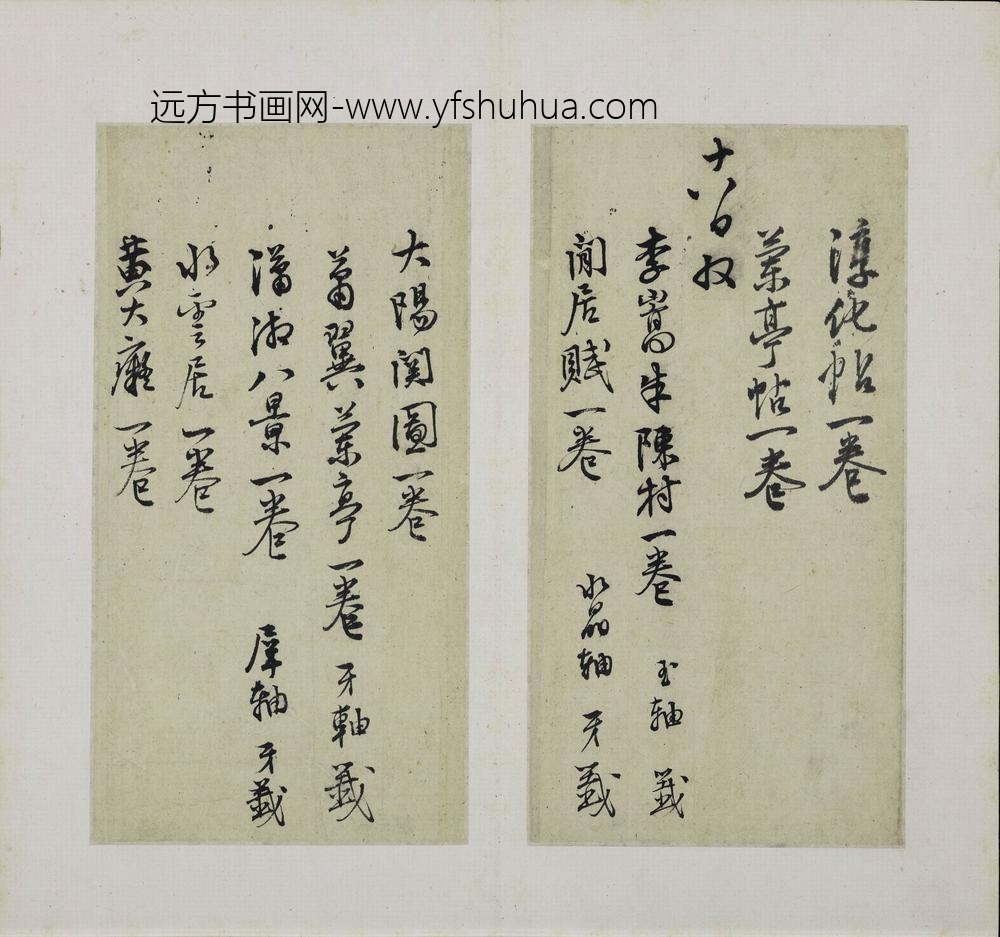 远方书画网-www.yfshuhua.com
淳化帖一卷
蘭亭帖一卷
十八日收
李嵩朱陳村一卷 玉軸 籤
閒居賦一卷 水晶軸 牙籤
大陽關圖一卷
蕭翼蘭亭一卷 牙軸 籤
瀟湘八景一卷 犀軸 牙籤
水雲居一卷
黃大癡一卷